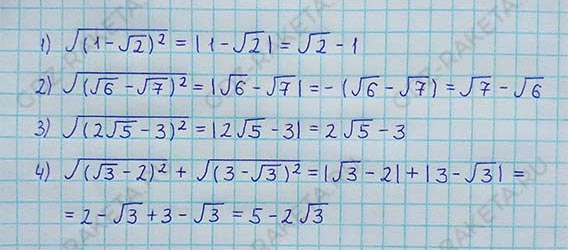 1) √(1-√2)² = |1-√2| = √2 - 1
2) √(√6 - √7)² = |√6 - √7| = -(√6 - √7) = √7 - √6
3) √(2√5 - 3)² = |2√5 - 3| = 2√5 - 3
4) √(√3 - 2)² + √(3 - √3)² = |√3 - 2| + |3 - √3| =
= 2 - √3 + 3 - √3 = 5 - 2√3